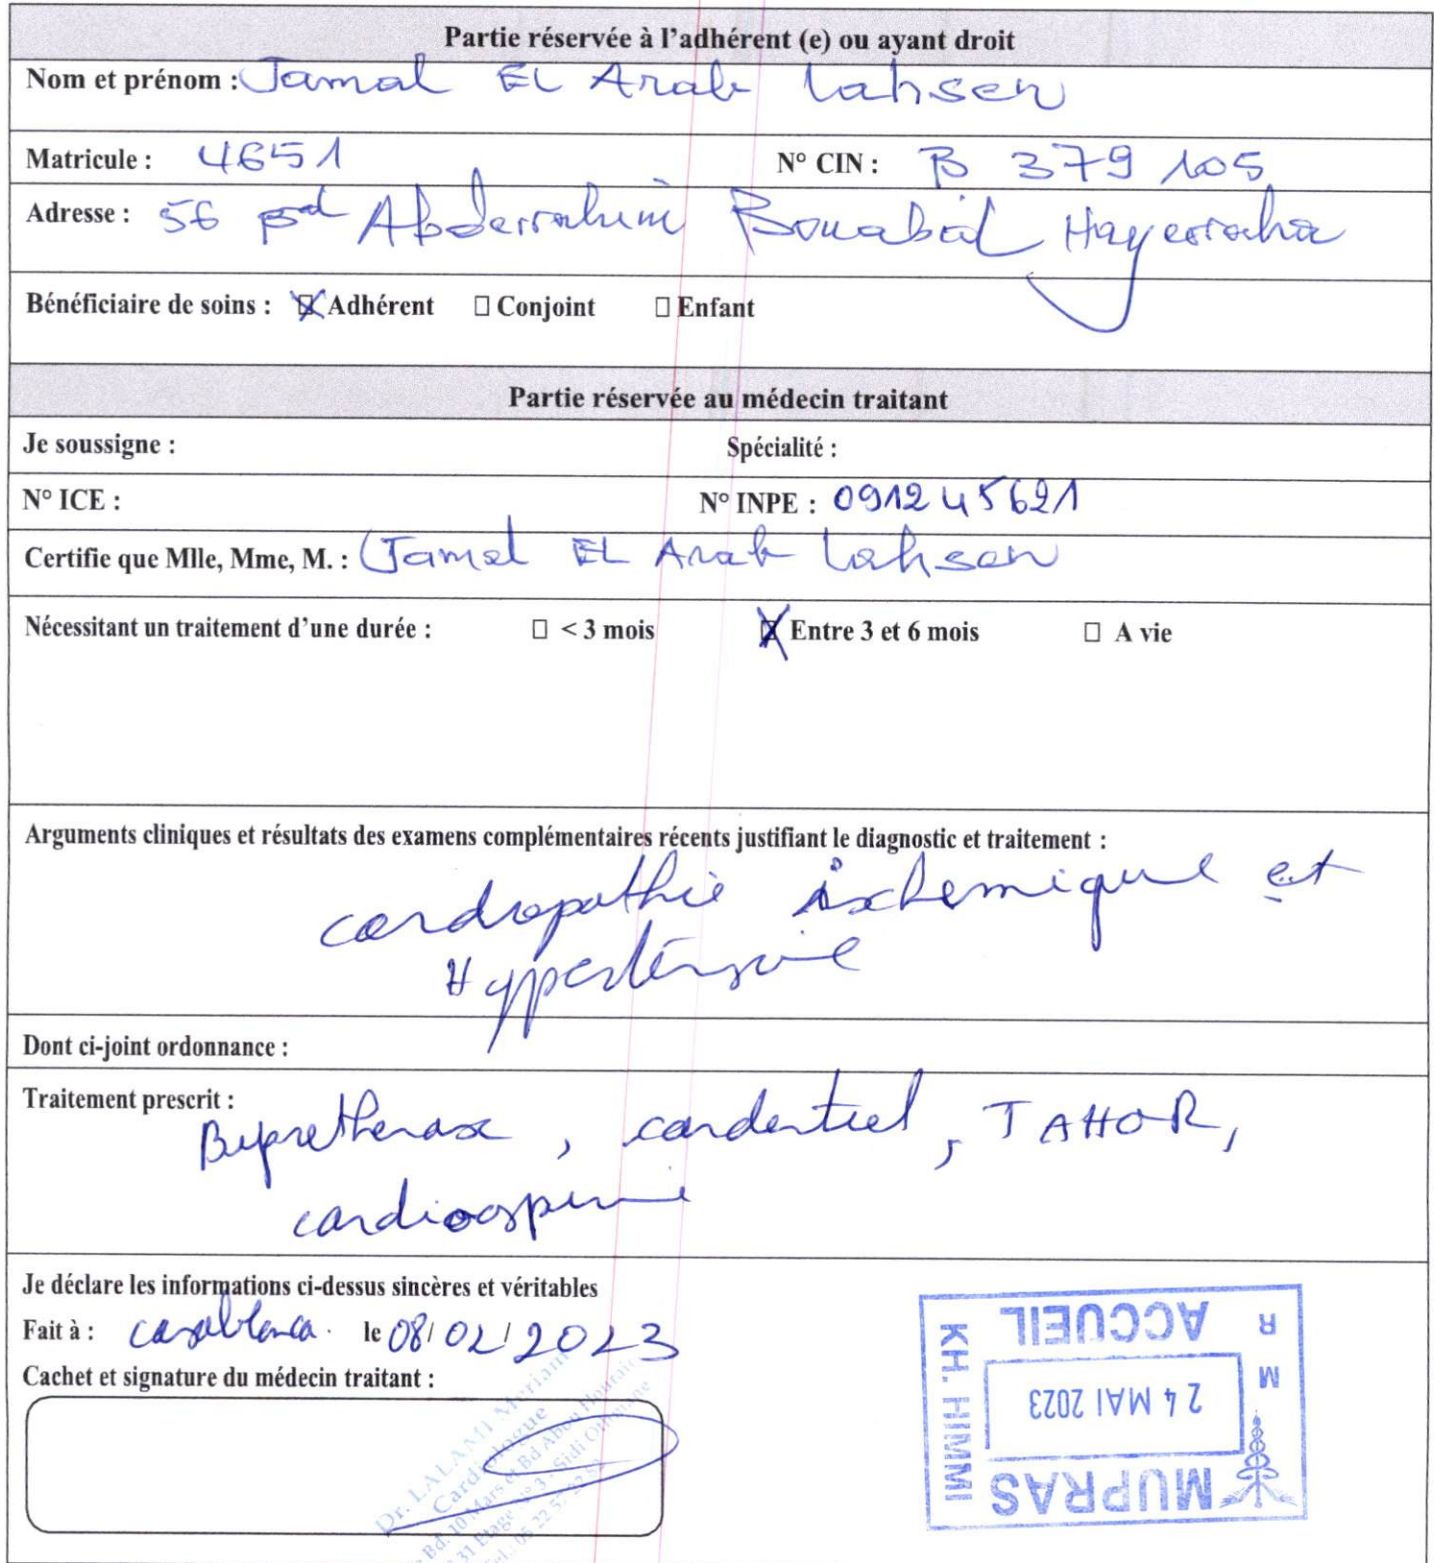 Partie réservée à l'adhérent (e) ou ayant droit
Nom et prénom : Jamal EL Arab Lahsen
Matricule : 4651 N° CIN : B 379 105
Adresse : 56 Bd Abderrahim Bouabid Hayerraha
Bénéficiaire de soins : ☒ Adhérent ☐ Conjoint ☐ Enfant
Partie réservée au médecin traitant
Je soussigne : Spécialité :
N° ICE : N° INPE : 091245621
Certifie que Mlle, Mme, M. : Jamal EL Arab Lahsen
Nécessitant un traitement d'une durée : ☐ < 3 mois ☒ Entre 3 et 6 mois ☐ A vie
Arguments cliniques et résultats des examens complémentaires récents justifiant le diagnostic et traitement :
cardiopathie ischemique et
Hypertensive
Dont ci-joint ordonnance :
Traitement prescrit :
Bipretherax, cardentiel, TAHOR,
cardioaspirine
Je déclare les informations ci-dessus sincères et véritables
Fait à : casablanca. le 08/02/2023
Cachet et signature du médecin traitant :
Dr. LALAMI Meriam
Cardiologue
Bd. 10 Mars et Bd Abou
31 Etage N° 3 - Sidi Othmane
MUPRAS
24 MAI 2023
ACCUEIL
KH. HIMMI
R M